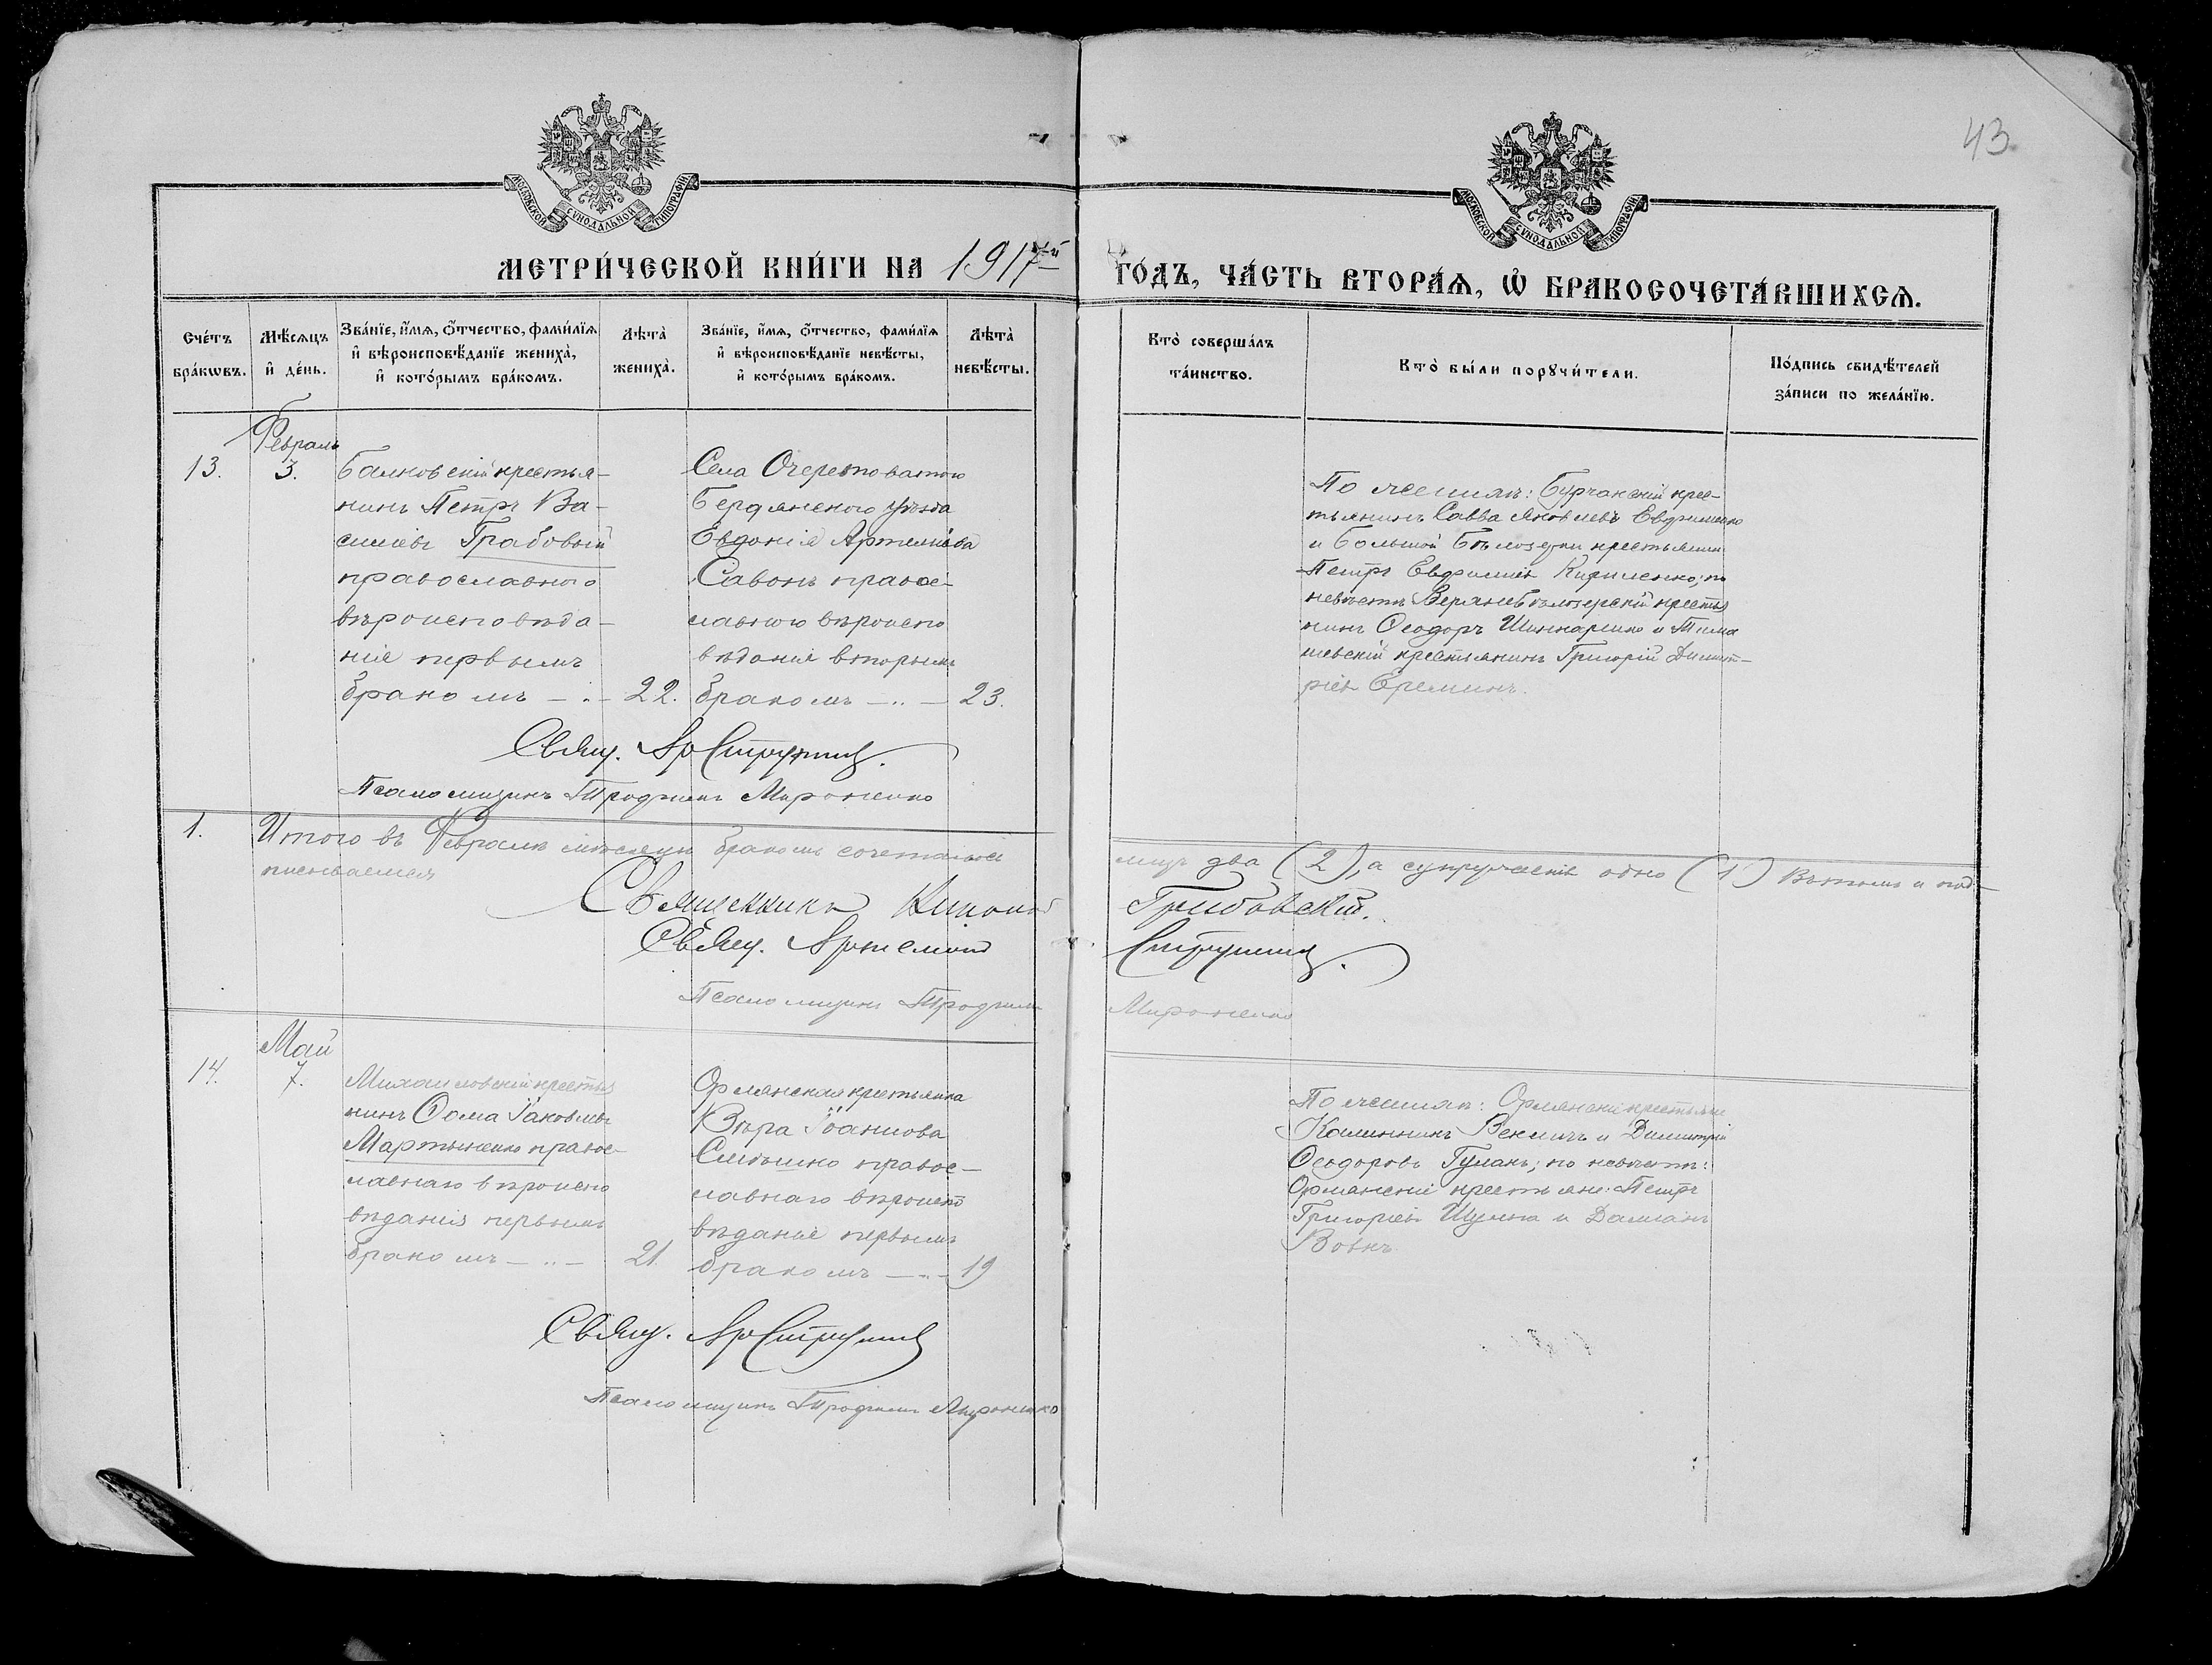 43
МОСКОВСКОЙ СѴНОДАЛЬНОЙ ТИПОГРАФІИ
МОСКОВСКОЙ СѴНОДАЛЬНОЙ ТИПОГРАФІИ
МЕТРИ́ЧЕСКОЙ КНИ́ГИ НА 1917-й ГО́ДЪ, ЧА́СТЬ ВТОРА́Ѧ, Ѽ БРАКОСОЧЕТА́ВШИХСѦ.
Сче́тъ бра́кѡвъ.
Мѣ́сѧцъ и҆ де́нь.
Зва́нїе, и҆́мѧ, ѻ҆́тчество, фами́лїѧ и҆ вѣроисповѣ́данїе жениха̀, и҆ кото́рымъ бра́комъ.
Лѣта̀ жениха̀.
Зва́нїе, и҆́мѧ, ѻ҆́тчество, фами́лїѧ и҆ вѣроисповѣ́данїе невѣ́сты, и҆ кото́рымъ бра́комъ.
Лѣта̀ невѣ́сты.
Кто̀ соверша́лъ та́инство.
Кто̀ бы́ли порꙋчи́тели.
По́дпись свидѣ́телей за́писи по жела́нїю.
13.
Февраль
3.
Балковскій крестья-
нинъ Петръ Ва-
силіевъ Грабовый
православнаго
вѣроисповѣда-
нія первымъ
бракомъ 22.
Села Очеретоватаго
Бердянскаго уѣзда
Евдокія Артеміева
Савонъ правос-
лавнаго вѣроиспо
вѣданія вторымъ
бракомъ 23.
По женихѣ: Бурчанскій крес-
тьянинъ Савва Яковлевъ Евдрименко
и Большой Бѣлозерки крестьянин
Петръ Евфиміевъ Кириленко; по
невѣстѣ Верхнебѣлозерскій крестья
нинъ Ѳеодоръ Шинкаренко и Тима
шевскій крестьянинъ Григорій Димит-
ріевъ Ереминъ.
Свящ. Ар Струтин
Псаломщикъ Трофимъ Мироненко
1. Итого въ Февралѣ мѣсяцѣ бракомъ сочеталось лицъ два (2), а супружествъ одно (1) Въ томъ и под-
писываемся
Священникъ Грибовскій.
Свящ. Артемонъ
Псаломщикъ Трофимъ Мироненко
14.
Май
7.
Михайловскій крестья
нинъ Ѳома Іаковлевъ
Мартыненко правос-
лавнаго вѣроиспо
вѣданія первымъ
бракомъ 21.
Орлянская крестьянка
Вѣра Іоаннова
правос-
лавнаго вѣроиспо
вѣданія первымъ
бракомъ 19
По женихѣ: Орлянскіе крестьяне
Калинникъ и Димитрій
Ѳеодоровъ Гуланъ; по невѣстѣ:
Орлянскіе крестьяне: Петръ
Григоріевъ Шульга и Даміанъ
Вовкъ.
Свящ. Ар Струтин
Псаломщикъ Трофимъ Мироненко